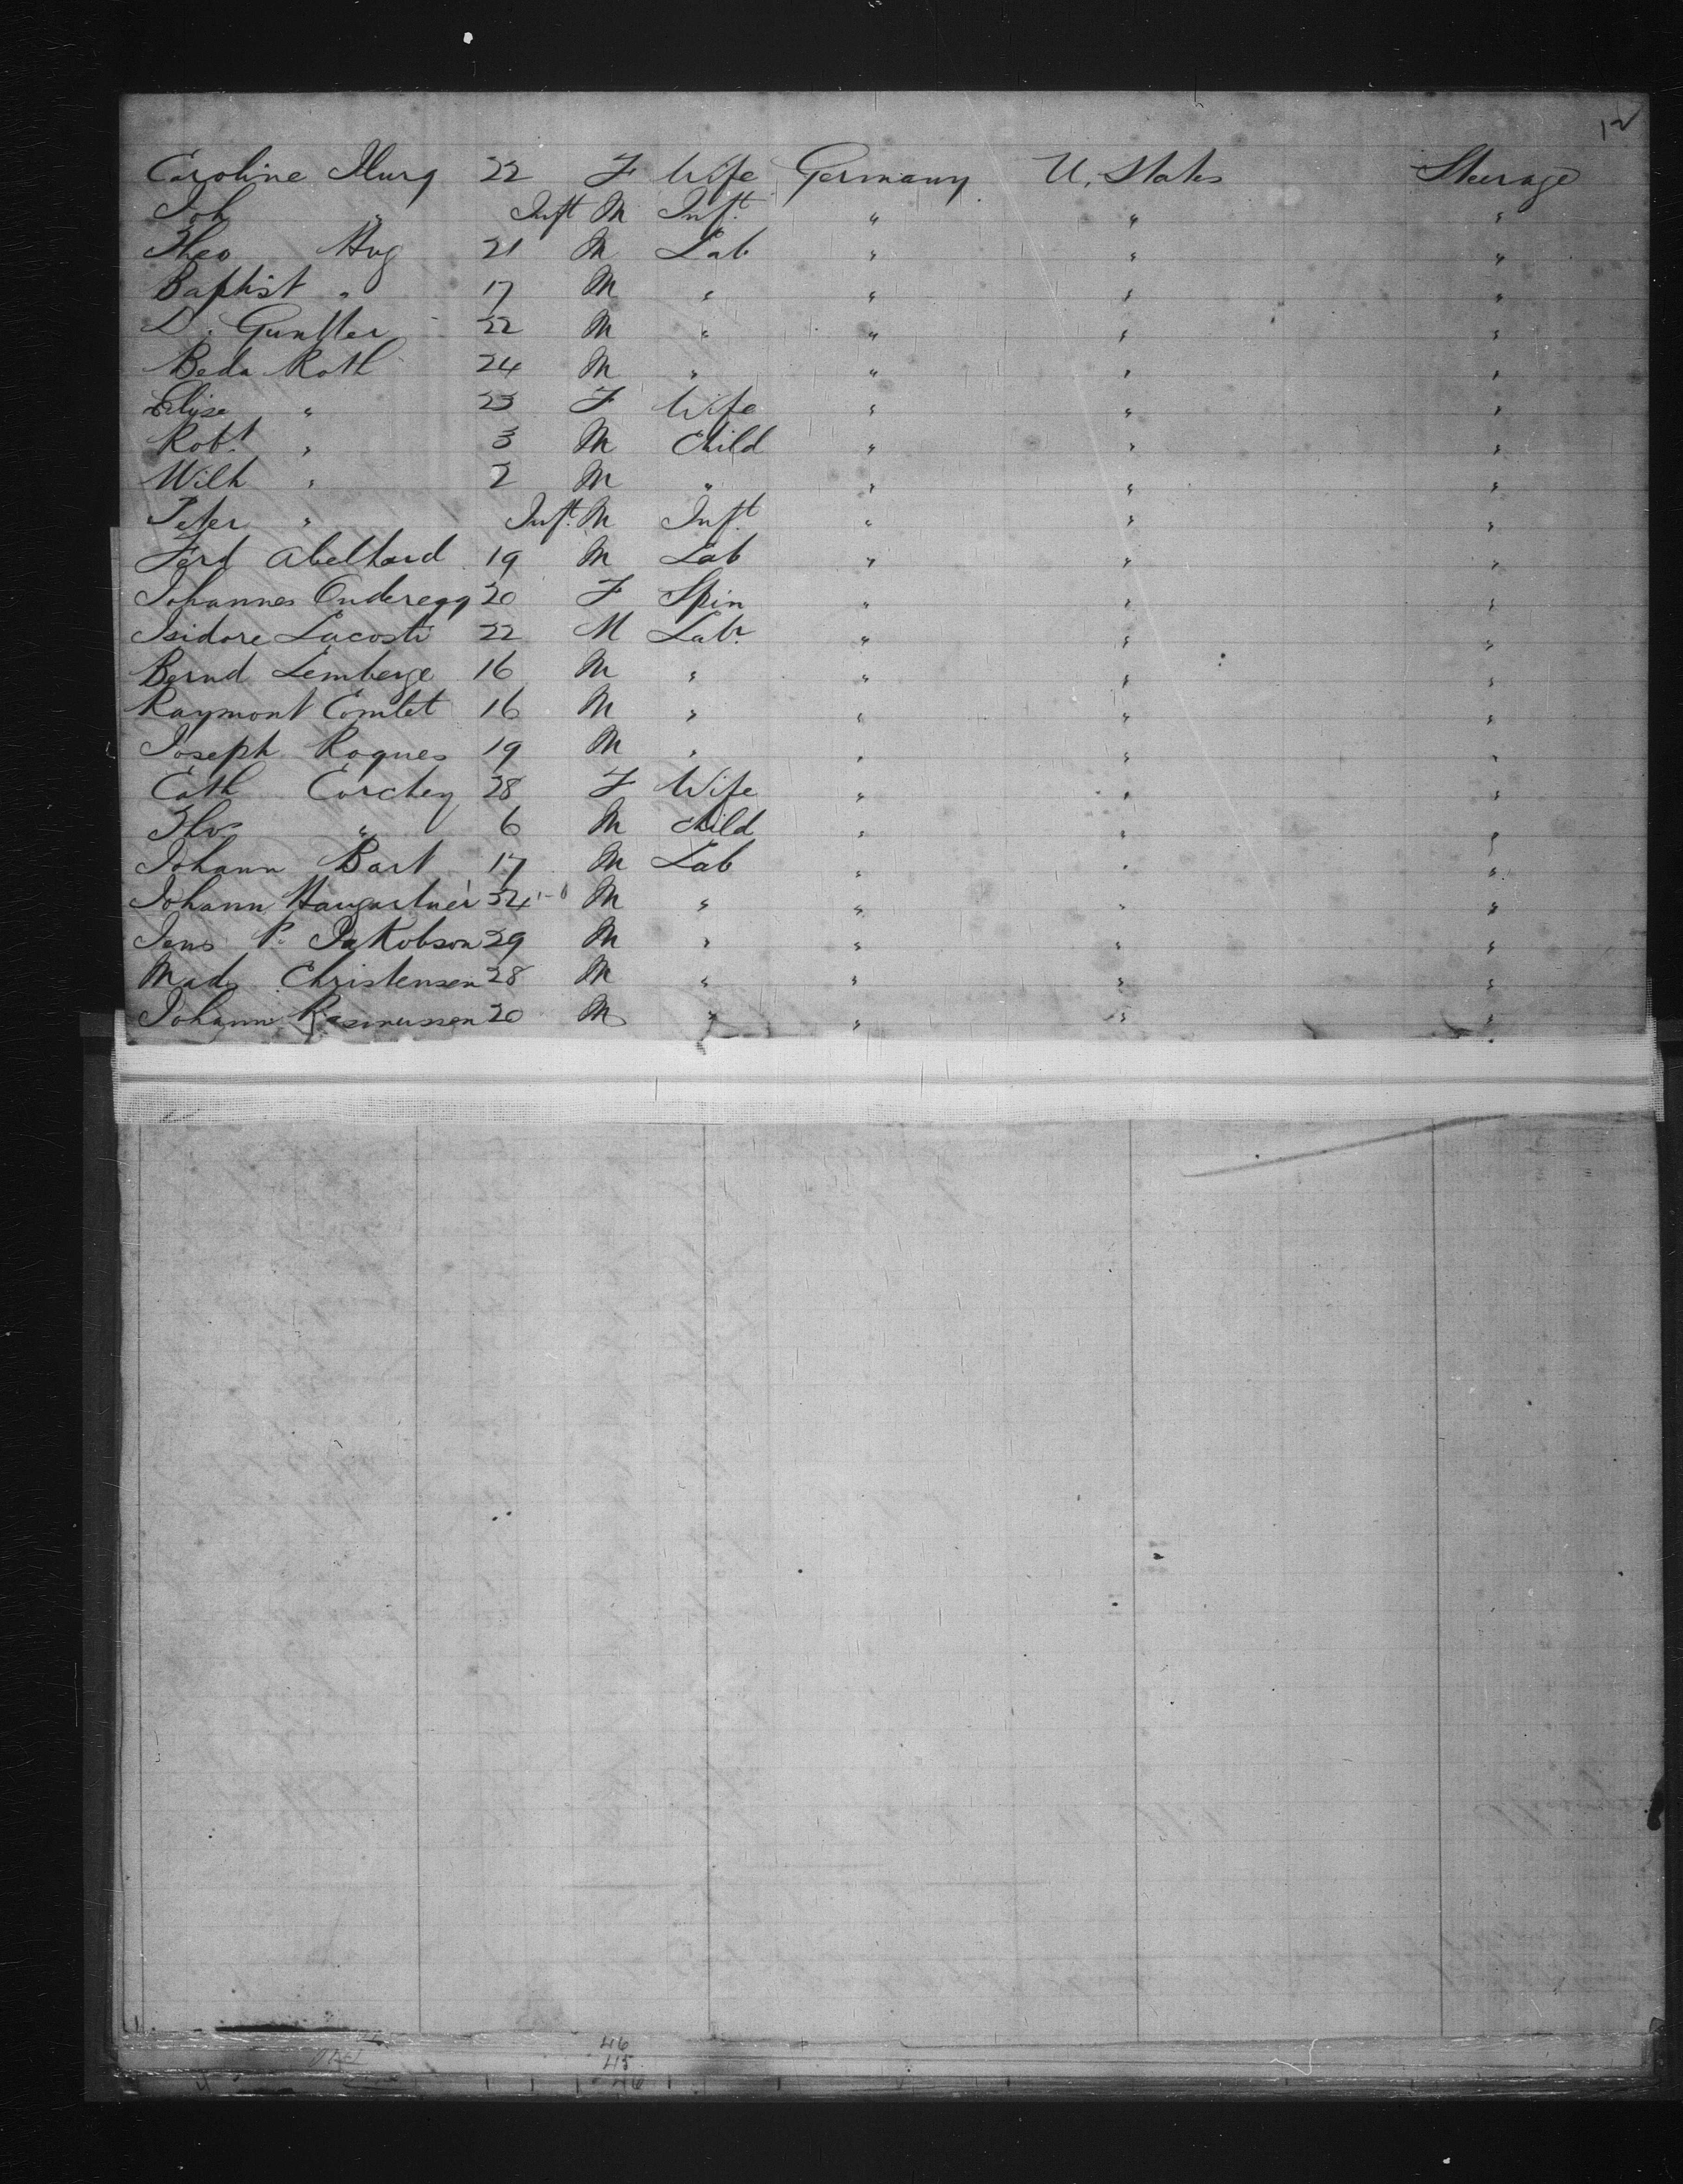 12
Caroline Illurg 22 F Wife Germany U. States Steerage
Joh " Inft M Inft " " "
Theo Hug 21 M Lab " " "
Baptist " 17 M " " " "
D. Gunther 22 M " " " "
Beda Roth 24 M " " " "
Elise " 23 F Wife " " "
Robt " 3 M Child " " "
Wilh " 2 M " " " "
Peter " Inft. M Inft " " "
Ferd Abelhard 19 M Lab " " "
Johannes Onderegg 20 F Spin " " "
Isidore Lacosti 22 M Labr " " "
Bernd Lemberge 16 M " " " "
Raymont Comtet 16 M " " " "
Joseph Roques 19 M " " " "
Cath Corchey 28 F Wife " " "
Thos " 6 M Child " " "
Johann Bart 17 M Lab " " "
Johann 34 M " " " "
Jens P. Jakobson 29 M " " " "
Mads Christensen 28 M " " " "
Johann Rasmussen 20 M " " " "
46
45
46